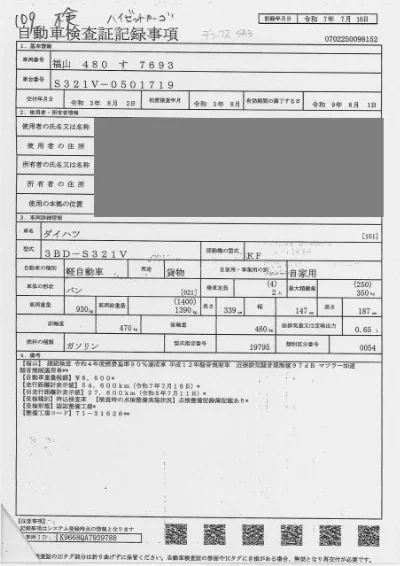 109 検 ハイゼットカーゴ
記録年月日 令和 7年 7月16日
自動車検査証記録事項
0702250098152
1. 基本情報
車両番号 福山 480 す 7693
車台番号 S321V-0501719
交付年月日 令和 3年 8月 2日 初度検査年月 令和 3年 8月 有効期間の満了する日 令和 9年 8月 1日
2. 使用者・所有者情報
使用者の氏名又は名称
使用者の住所
所有者の氏名又は名称
所有者の住所
使用の本拠の位置
3. 車両詳細情報
車名 ダイハツ [151]
型式 3BD-S321V 原動機の型式 KF
自動車の種別 軽自動車 用途 貨物 自家用・事業用の別 自家用
車体の形状 バン [021] 乗車定員 (4) 2人 最大積載量 (250) 350kg
車両重量 930kg 車両総重量 (1400) 1390kg 長さ 339cm 幅 147cm 高さ 187cm
前軸重 470kg 後軸重 460kg 総排気量又は定格出力 0.65L
燃料の種類 ガソリン 型式指定番号 19795 類別区分番号 0054
4. 備考
【福山】 継続検査 令和4年度燃費基準90%達成車 平成12年騒音規制車 近接排気騒音規制値97dB マフラー加速
騒音規制適用車**
【自動車重量税額】¥6,600*
【走行距離計表示値】54,600km(令和7年7月16日)*
【旧走行距離計表示値】27,600km(令和5年7月11日)*
【受検種別】持込検査 【検査時の点検整備実施状況】点検整備記録簿記載あり*
【受検形態】認証整備工場*
【整備工場コード】71-31626**
【注意事項】
記録事項はシステム登録時点の情報となります
車両ID: K9668QA7939788